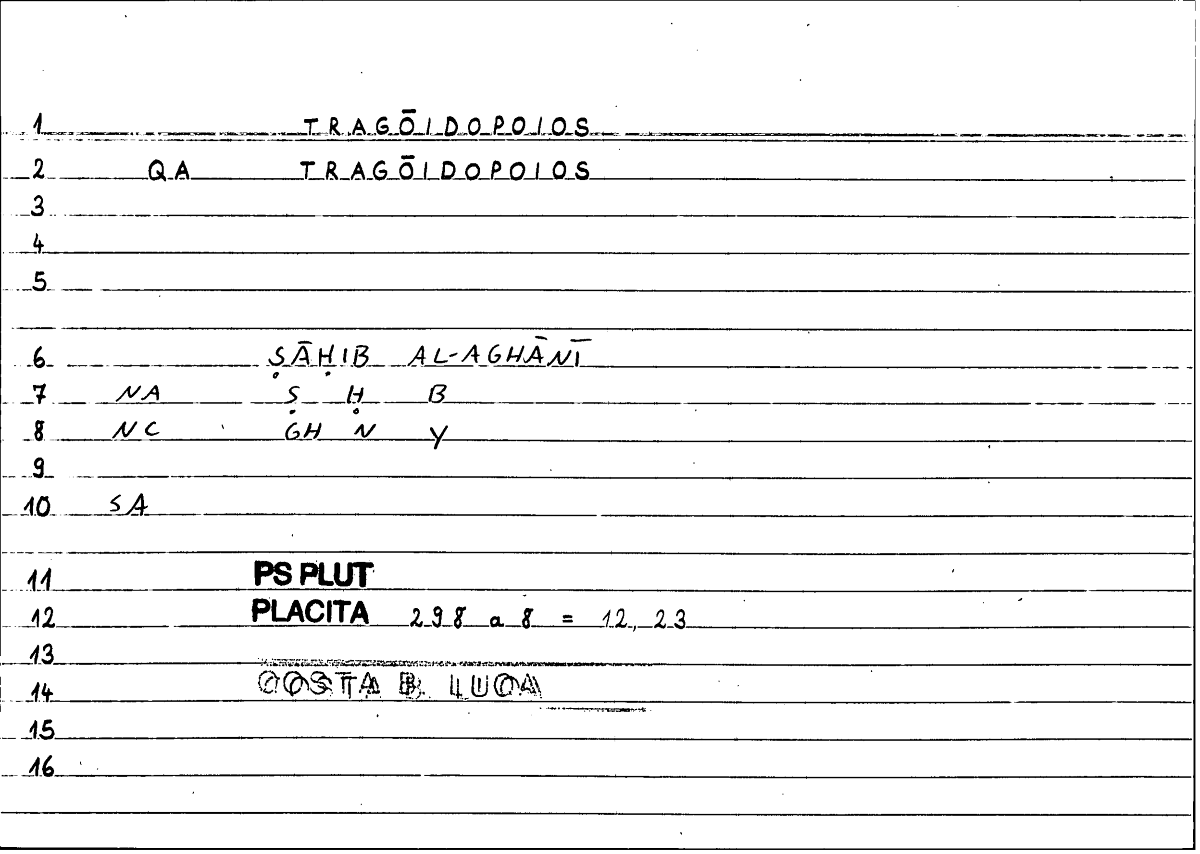 1 TRAGŌIDOPOIOS
2 QA TRAGŌIDOPOIOS
3
4
5
6 ṢĀḤIB AL-AGHĀNĪ
7 NA Ṣ Ḥ B
8 NC GH N Y
9
10 SA
11 PS PLUT
12 PLACITA 298 a 8 = 12, 23
13
14 QOSTA B. LUQA
15
16